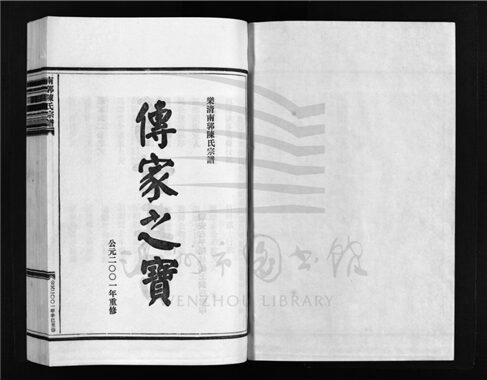 樂清南郭陳氏宗譜
傳家之寶
公元二〇〇一年重修
南郭陳氏宗譜
溫州市图书館
WENZHOU LIBRARY